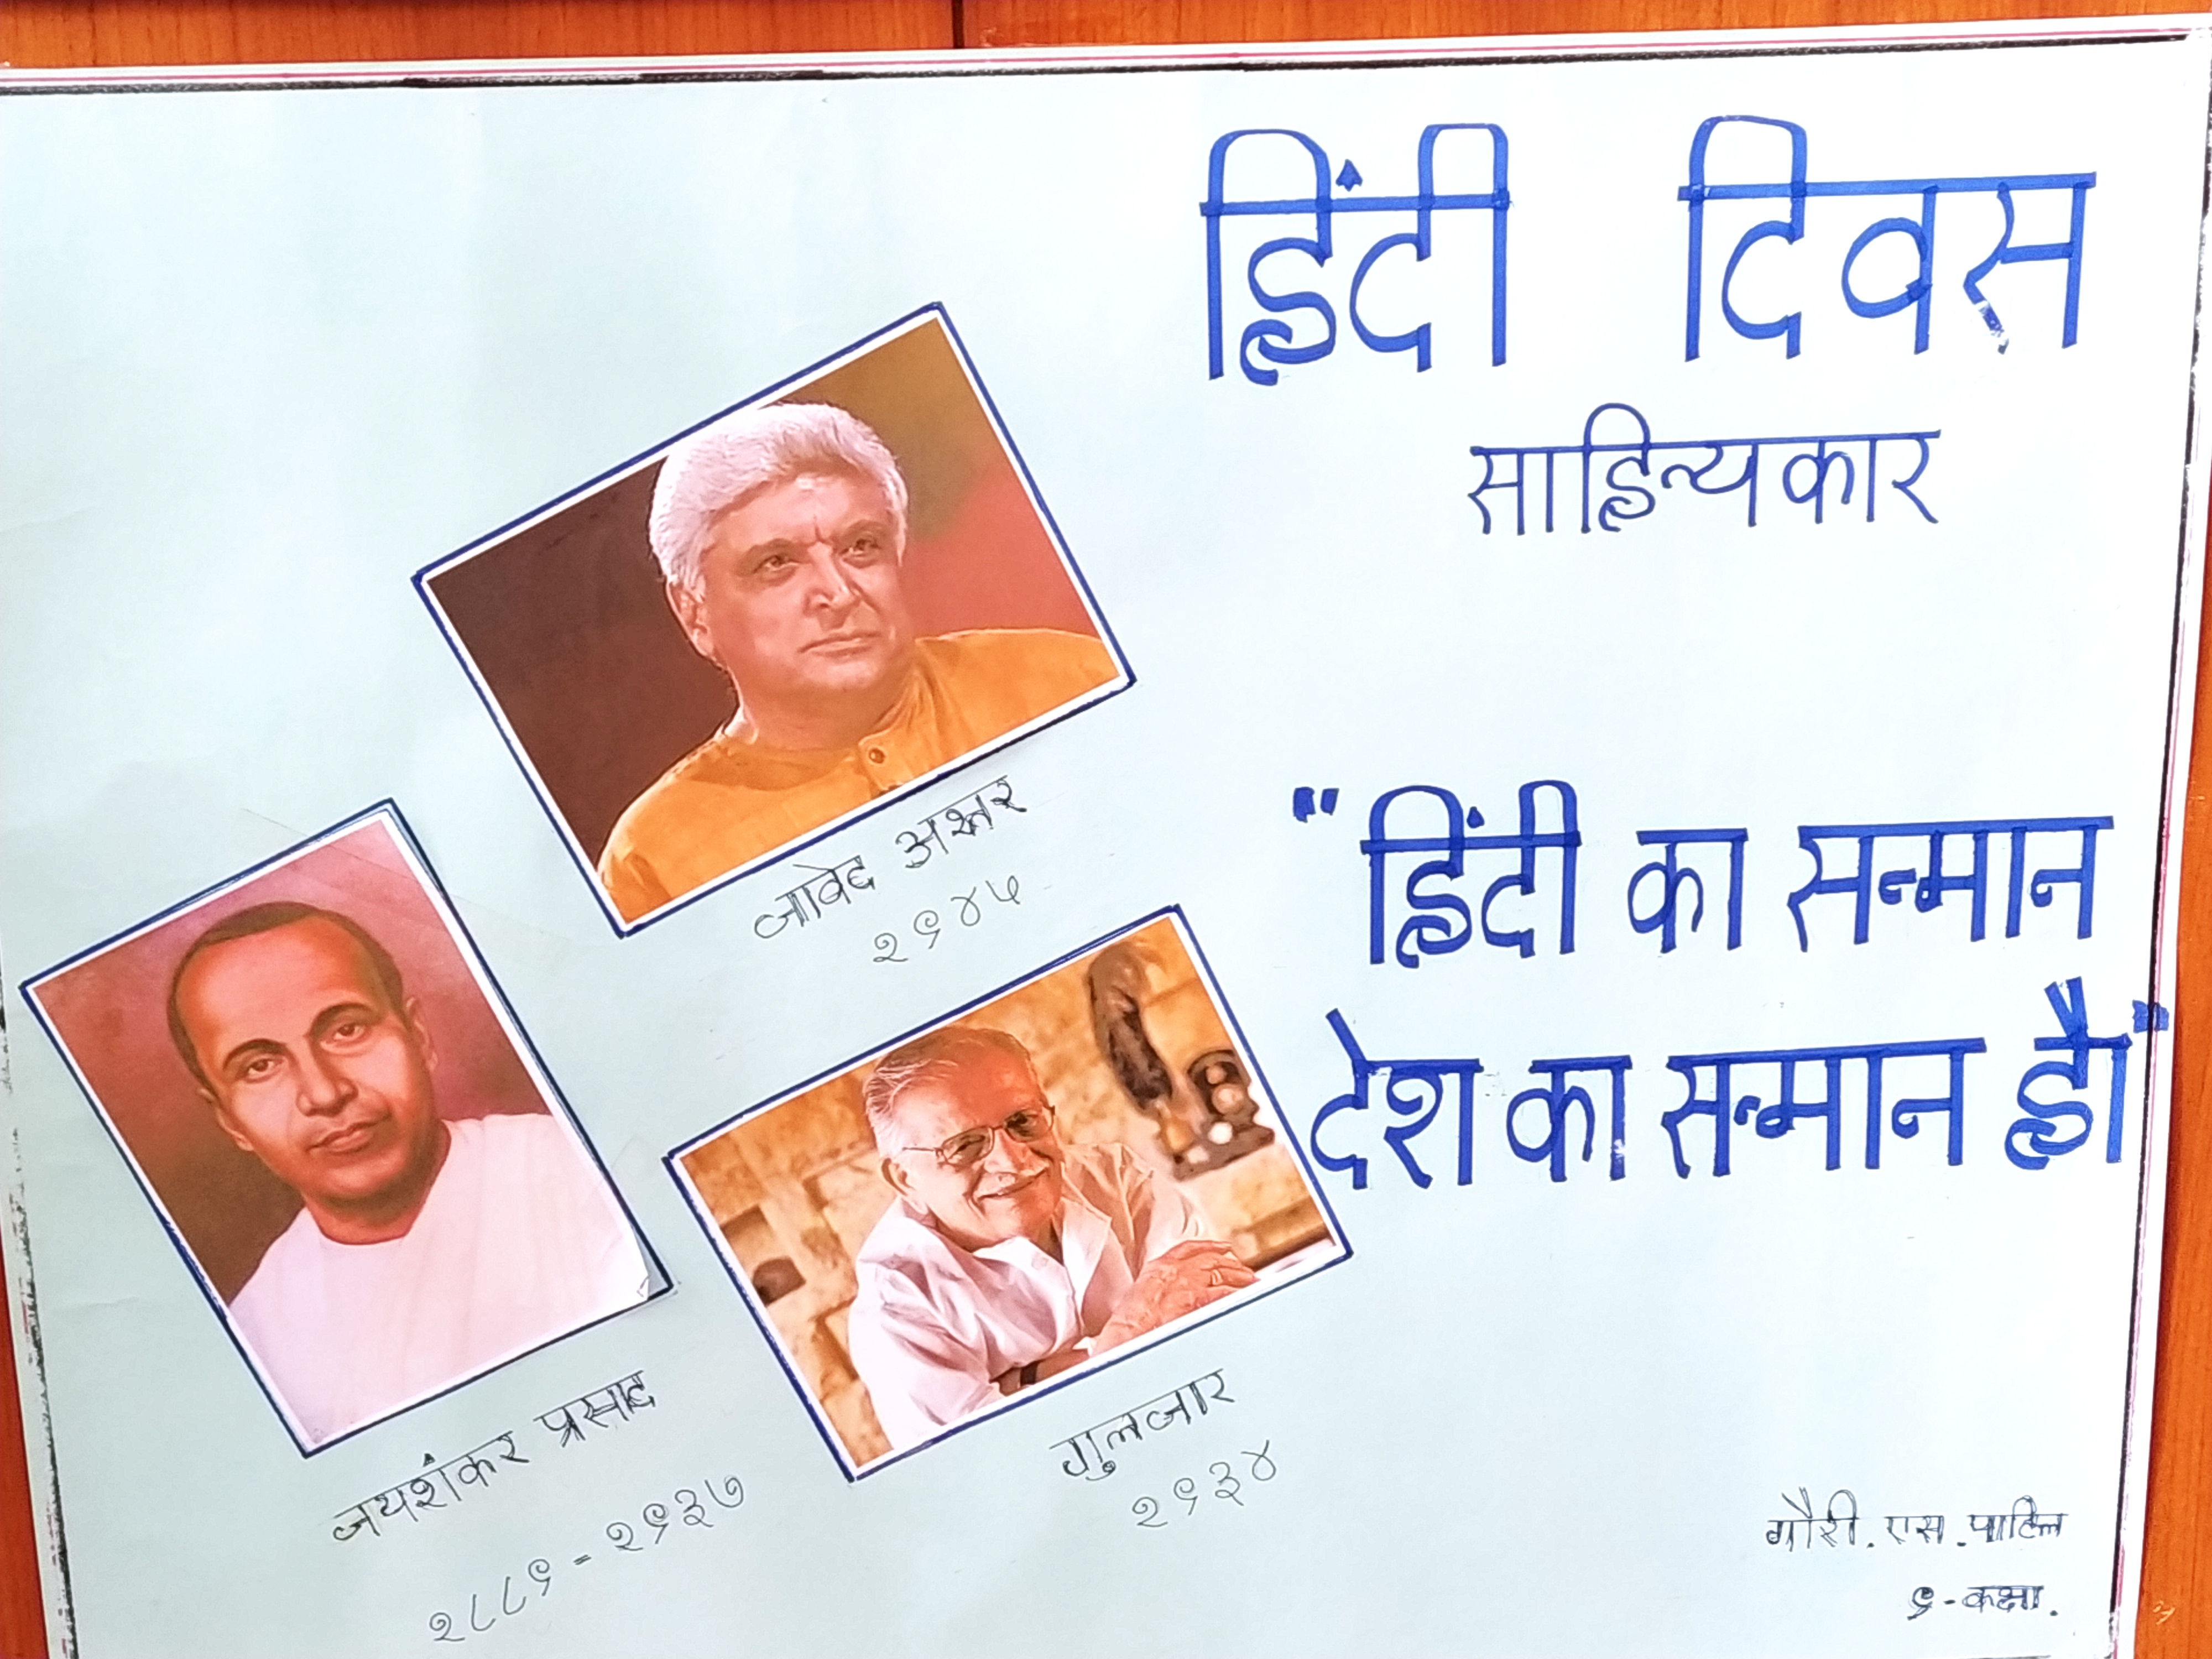 हिंदी दिवस
साहित्यकार
जावेद अख्तर
१९४५
"हिंदी का सन्मान
देश का सन्मान है।"
जयशंकर प्रसाद
१८८९ - १९३७
गुलजार
१९३४
गौरी. एस. पाटिल
९ - कक्षा.